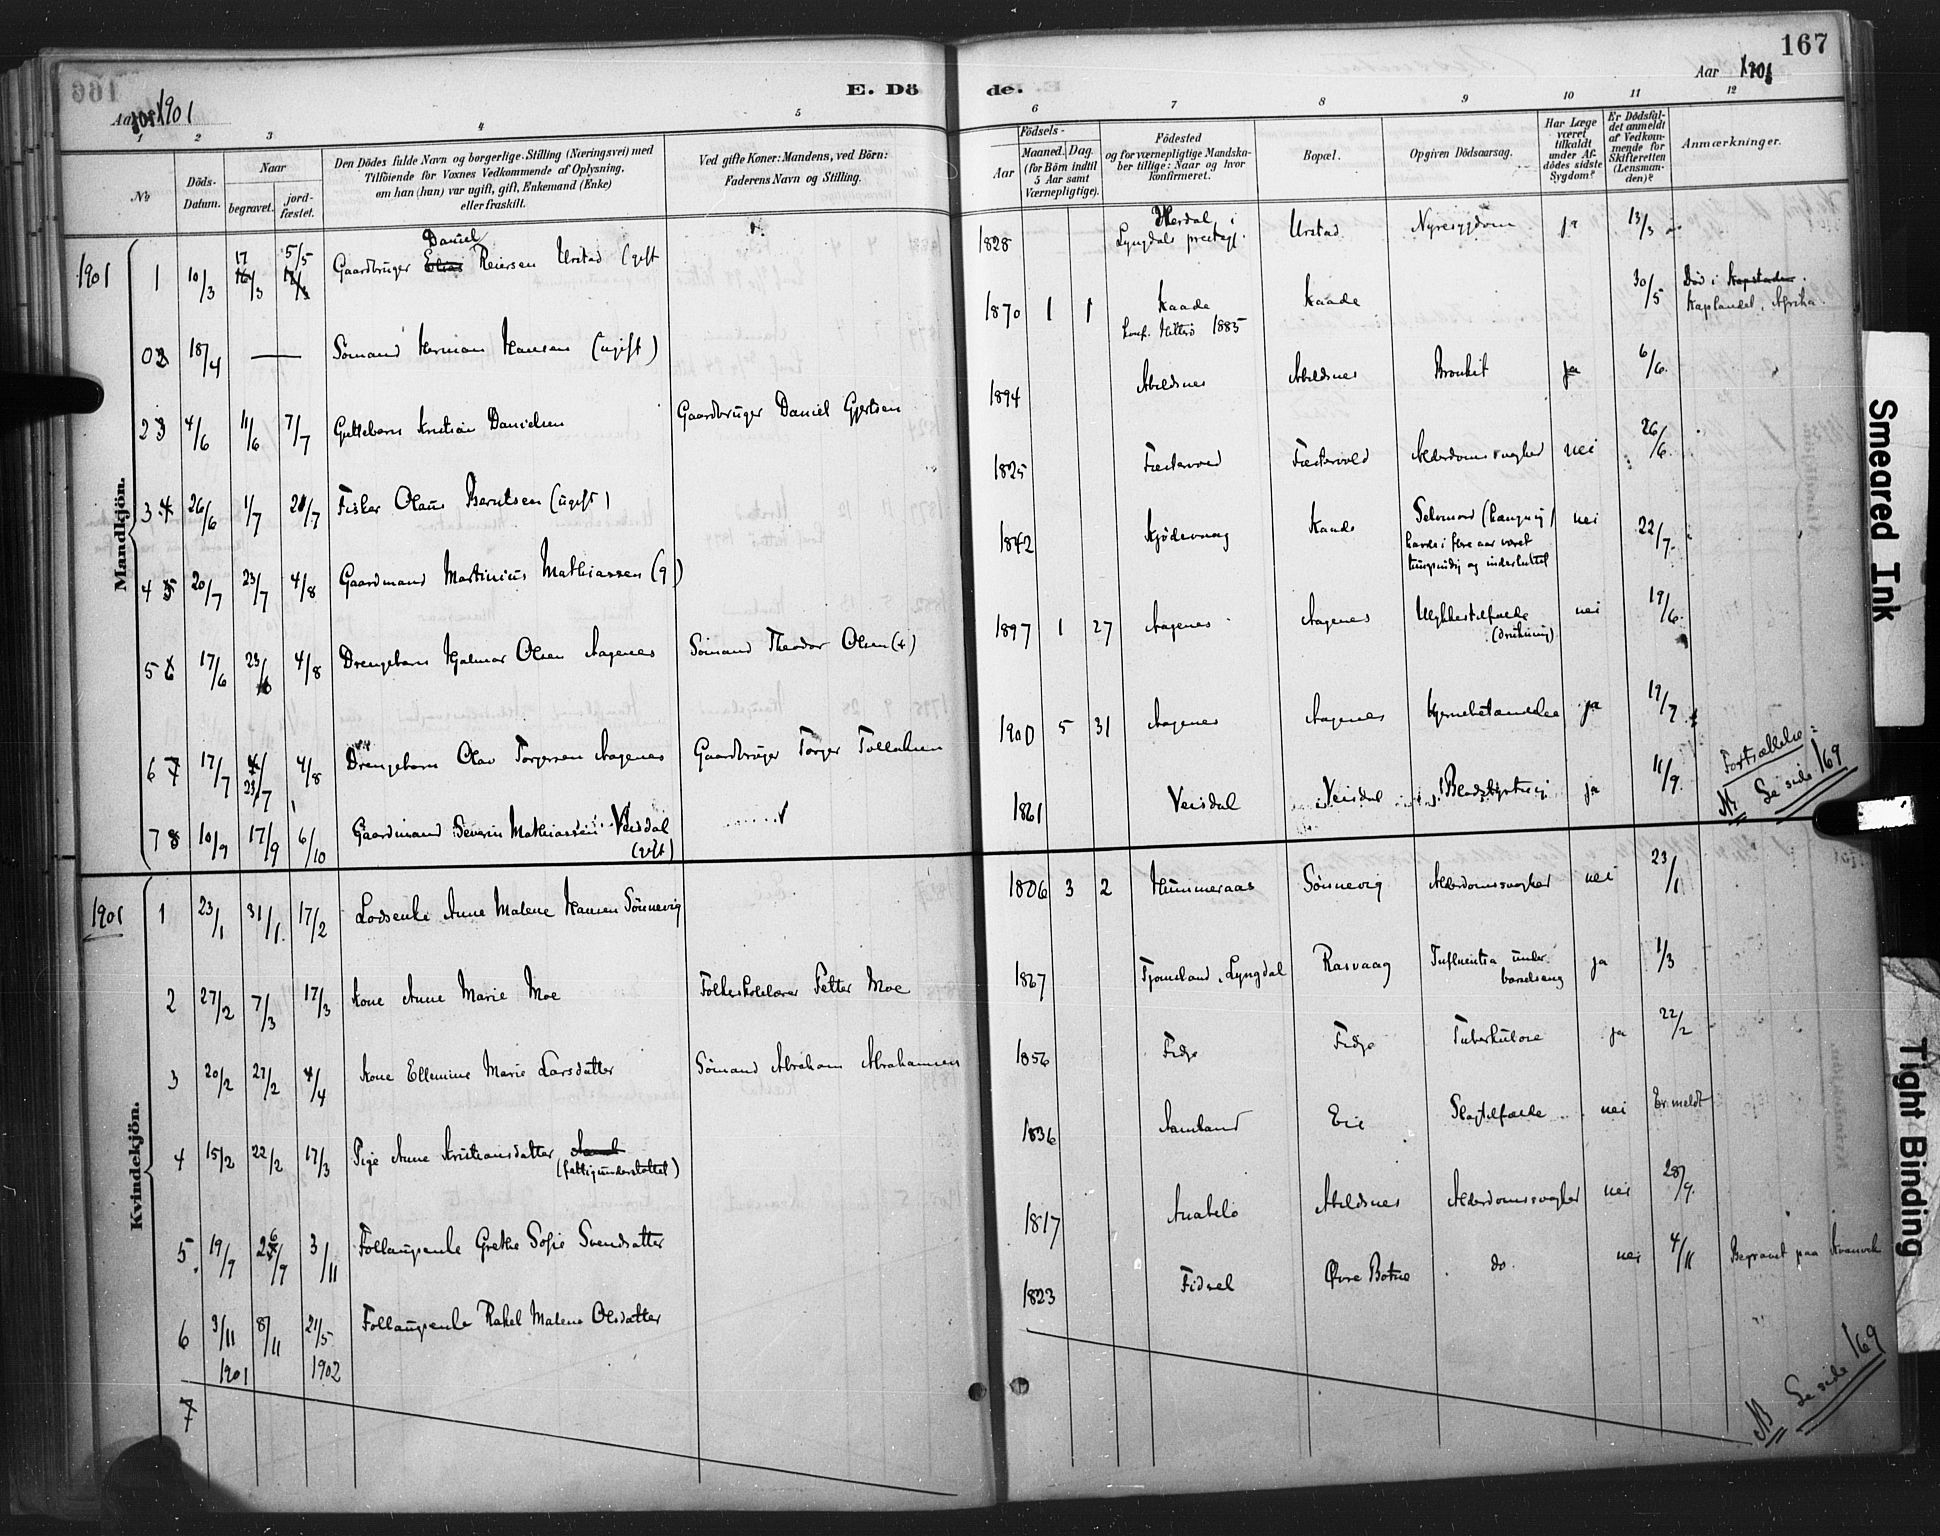 166
Aar 1901
E. Døde.
Aar 1901
167
1 2 3 4 5 6 7 8 9 10 11 12
No
Døds-Datum.
Naar
begravet.
jord-fæstet.
Den Dödes fulde Navn og borgerlige Stilling (Næringsvei) med
Tilföiende for Voxnes Vedkommende af Oplysning,
om han (hun) var ugift, gift, Enkemand (Enke)
eller fraskilt.
Ved gifte Koner: Mandens, ved Børn:
Faderens Navn og Stilling.
Födsels-
Aar
Maaned. Dag.
(for Börn indtil
5 Aar samt
Værnepligtige).
Födested
og for værnepligtige Mandska-
ber tillige: Naar og hvor
konfirmeret.
Bopæl.
Opgiven Dödsaarsag.
Har Læge
været
tilkaldt
under Af-
dødes sidste
Sygdom?
Er Dödsfal-
det anmeldt
af Vedkom-
mende for
Skifteretten
(Lensman-
den)?
Anmærkninger.
Mandkjön.
1901 1 10/3 17/3 5/5 Gaardbruger Elias Daniel Reiersen Urstad (gift 1828 Herdal i Lyngdals prestegj. Urstad Nyresygdom ja 13/3
02 18/4 — Sömand Herman Hansen (ugift) 1870 1 1 Kaade Conf. Hitterö 1885 Kaade 30/5 Död i Kapstaden Kaplandet, Afrika.
2 3 4/6 11/6 7/7 Guttebarn Kristian Danielsen Gaardbruger Daniel Gjertsen 1894 Abeldsnes Abeldsnes Bronkit ja 6/6
3 4 26/6 1/7 21/7 Fisker Olaus Berntsen (ugift) 1825 Festervoed Festervold Alderdomssvaghed nei 26/6
4 5 20/7 23/7 4/8 Gaardmand Martinius Mathiassen (g) 1842 Kjödevaag Kaade Selvmord (hængning) havde i flere aar været tungsindig og indesluttet nei 22/7
5 6 17/6 23/6 4/8 Drengebarn Hjalmar Olsen Aagenes Sömand Theodor Olsen (+) 1897 1 27 Aagenes Aagenes Ulykkestilfælde (drukning) nei 19/6
6 7 17/7 23/7 4/8 Drengebarn Olav Torgersen Aagenes Gaardbruger Torger Tollaksen 1900 5 31 Aagenes Aagenes Hjernebetændelse ja 19/7
7 8 10/9 17/9 6/10 Gaardmand Severin Mathiassen Veisdal (gift) 1861 Veisdal Veisdal Blodstyrtning ja 11/9
Fortsættelse:
NB Se side 169
Kvindekjön.
1901 1 23/1 31/1 17/2 Lodsenke Anne Malene Hansen Sönnevig 1806 3 2 Hummeraas Sönnevig Alderdomssvaghed nei 23/1
2 27/2 7/3 17/3 Kone Anne Marie Moe Folkeskolelærer Petter Moe 1867 Tjomsland, Lyngdal Rasvaag Influentsa under barselseng ja 1/3
3 20/2 27/2 4/4 Kone Ellemine Marie Larsdatter Sömand Abraham Abrahamsen 1856 Fidje Fidje Tuberkulose ja 22/2
4 15/2 22/2 17/3 Pige Anne Kristiansdatter (fattigunderstöttet) 1836 Aamland Eie Slagtilfælde nei Er meldt
5 19/9 26/9 3/11 Follaugsenke Grethe Sofie Svendsatter 1817 Anabelö Abeldsnes Alderdomssvaghed nei 28/9
6 3/11 1901 8/11 21/5 1902 Follaugsenke Rakel Malene Olsdatter 1823 Fidsel Övre Botne do. nei 4/11 Begravet paa Kvanvik
7
NB Se side 169
Smeared Ink
Tight Binding